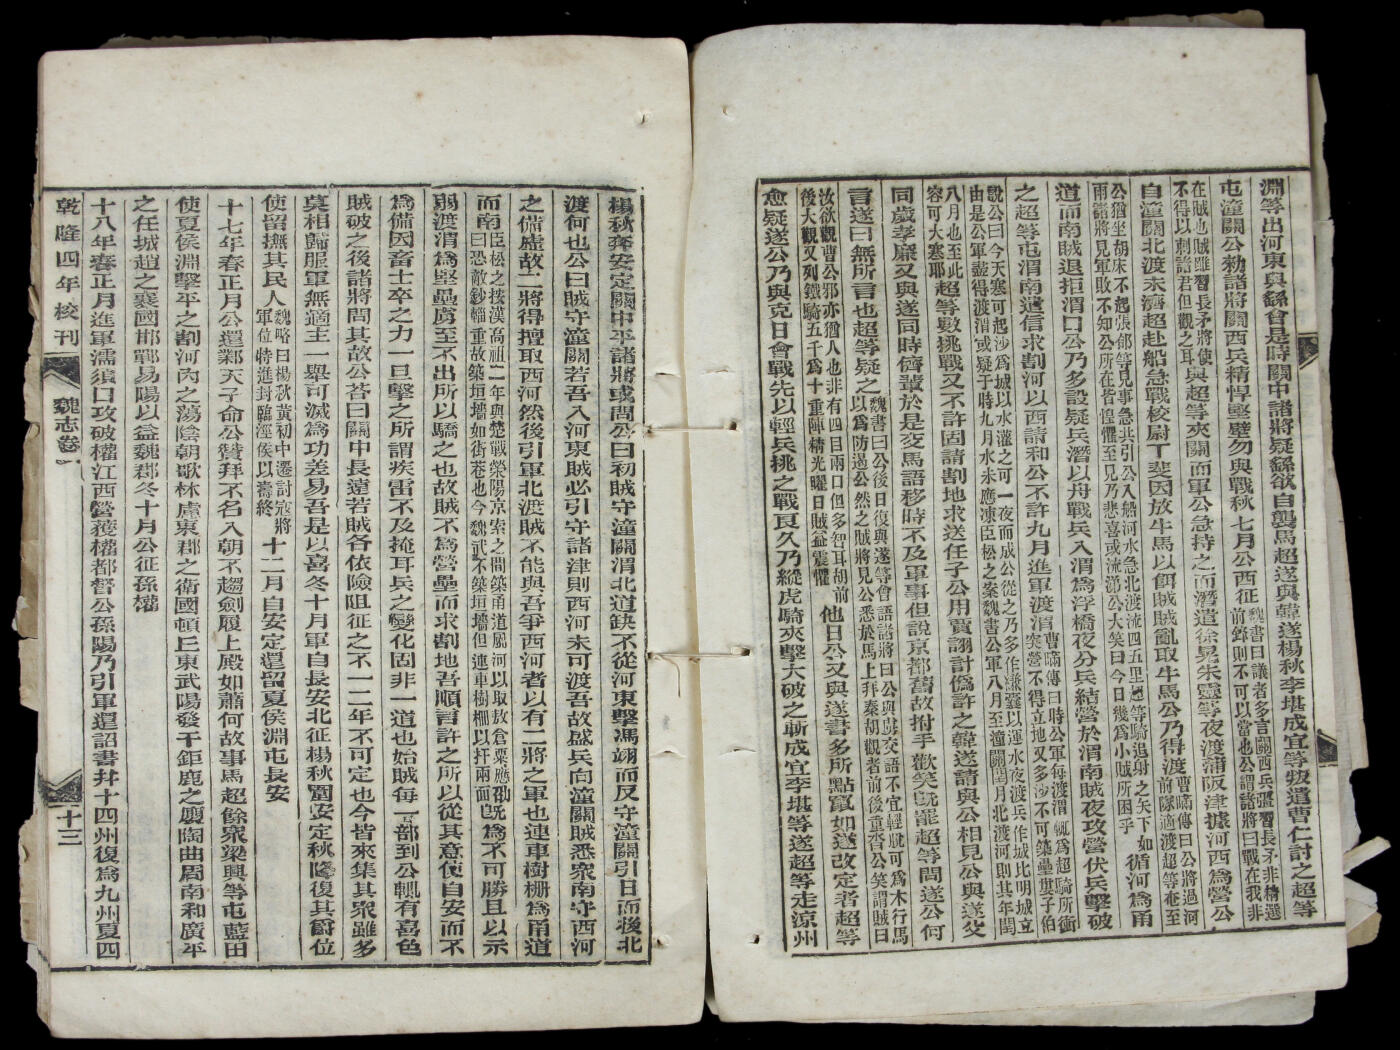 淵等出河東與繇會是時關中諸將疑繇欲自襲馬超遂與韓遂楊秋李堪成宜等叛遣曹仁討之超等
屯潼關公勅諸將關西兵精悍堅壁勿與戰秋七月公西征魏書曰議者多言關西兵彊習長矛非精選前鋒則不可以當也公謂諸將曰戰在我非
在賊也賊雖習長矛將使不得以刺諸君但觀之耳與超等夾關而軍公急持之而潛遣徐晃朱靈等夜渡蒲阪津據河西為營公
自潼關北渡未濟超赴船急戰校尉丁斐因放牛馬以餌賊賊亂取牛馬公乃得渡曹瞞傳曰公將過河前隊適渡超等奄至
公猶坐胡床不起張郃等見事急共引公入船河水急北渡流四五里超等騎追射之矢下如雨諸將見軍敗不知公所在皆惶懼至見乃悲喜或流涕公大笑曰今日幾為小賊所困乎循河為甬
道而南賊退拒渭口公乃多設疑兵潛以舟戰兵入渭為浮橋夜分兵結營於渭南賊夜攻營伏兵擊破
之超等屯渭南遣信求割河以西請和公不許九月進軍渡渭曹瞞傳曰時公軍每渡渭輒為超騎所衝突營不得立地又多沙不可築壘婁子伯
說公曰今天寒可起沙為城以水灌之可一夜而成公從之乃多作縑囊以運水夜渡兵作城比明城立由是公軍盡得渡渭或疑于時九月水未應凍臣松之案魏書公軍八月至潼關閏月北渡河則其年閏
八月也至此容可大寒耶超等數挑戰又不許固請割地求送任子公用賈詡計偽許之韓遂請與公相見公與遂父
同歲孝廉又與遂同時儕輩於是交馬語移時不及軍事但說京都舊故拊手歡笑旣罷超等問遂公何
言遂曰無所言也超等疑之魏書曰公後日復與遂等會語諸將曰公與虜交語不宜輕脫可為木行馬以為防遏公然之賊將見公悉於馬上拜秦胡觀者前後重沓公笑謂賊曰
汝欲觀曹公邪亦猶人也非有四目兩口但多智耳胡前後大觀又列鐵騎五千為十重陣精光曜日賊益震懼他日公又與遂書多所點竄如遂改定者超等
愈疑遂公乃與克日會戰先以輕兵挑之戰良久乃縱虎騎夾擊大破之斬成宜李堪等遂超等走涼州
楊秋奔安定關中平諸將或問公曰初賊守潼關渭北道缺不從河東擊馮翊而反守潼關引日而後北
渡何也公曰賊守潼關若吾入河東賊必引守諸津則西河未可渡吾故盛兵向潼關賊悉衆南守西河
之備虛故二將得擅取西河然後引軍北渡賊不能與吾爭西河者以有二將之軍也連車樹柵為甬道
而南臣松之按漢高祖二年與楚戰滎陽京索之間築甬道屬河以取敖倉粟應劭曰恐敵鈔輜重故築垣墻如街巷也今魏武不築垣墻但連車樹柵以扞兩面旣為不可勝且以示
弱渡渭為堅壘虜至不出所以驕之也故賊不為營壘而求割地吾順言許之所以從其意使自安而不
為備因畜士卒之力一旦擊之所謂疾雷不及掩耳兵之變化固非一道也始賊每一部到公輒有喜色
賊破之後諸將問其故公荅曰關中長遠若賊各依險阻征之不一二年不可定也今皆來集其衆雖多
莫相歸服軍無適主一舉可滅為功差易吾是以喜冬十月軍自長安北征楊秋圍安定秋降復其爵位
使留撫其民人魏略曰楊秋黃初中遷討寇將軍位特進封臨涇侯以壽終十二月自安定還留夏侯淵屯長安
十七年春正月公還鄴天子命公贊拜不名入朝不趨劍履上殿如蕭何故事馬超餘衆梁興等屯藍田
使夏侯淵擊平之割河內之蕩陰朝歌林慮東郡之衛國頓丘東武陽發干鉅鹿之廮陶曲周南和廣平
之任城趙之襄國邯鄲易陽以益魏郡冬十月公征孫權
十八年春正月進軍濡須口攻破權江西營獲權都督公孫陽乃引軍還詔書幷十四州復為九州夏四
乾隆四年校刊
魏志卷一
十三